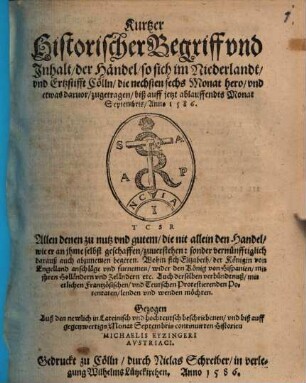 1.
Kurtzer
Historischer Begriff vnd
Inhalt / der Händel / so sich im Niederlandt /
vnd Ertzstifft Cölln / die nechsten sechs Monat hero / vnd
etwas daruor / zugetragen / biß auff jetzt ablauffendts Monat
Septembris / Anno 1586.
S A
A P
NCVIA
I
T C S R
Allen denen zu nutz vnd gutem / die nit allein den Handel /
wie er an jhme selbst geschaffen / zuuerstehen: sonder vernünfftiglich
darauß auch abzunemen begeren. Wohin sich Elizabeth / der Königen von
Engelland anschläge vnd furnemen / wider den König von Hispanien / mit
jhren Holländern vnd Zeländern etc. Auch derselben verbündtnuß / mit
etlichen Frantzösischen / vnd Teutschen Protestierenden Po-
tentaten / lenden vnd wenden möchten.
Gezogen
Auß den newlich in Lateinisch vnd hochteutsch beschriebenen / vnd biß auff
gegenwertigen Monat Septembris continuirten Historien
MICHAELIS EYZINGERI
AVSTRIACI.
Gedruckt zu Cölln / durch Niclas Schreiber / in verle-
gung Wilhelms Lützekirchen. Anno 1586.